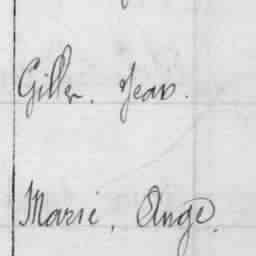 Giller. Jean.
Marie, Ange.